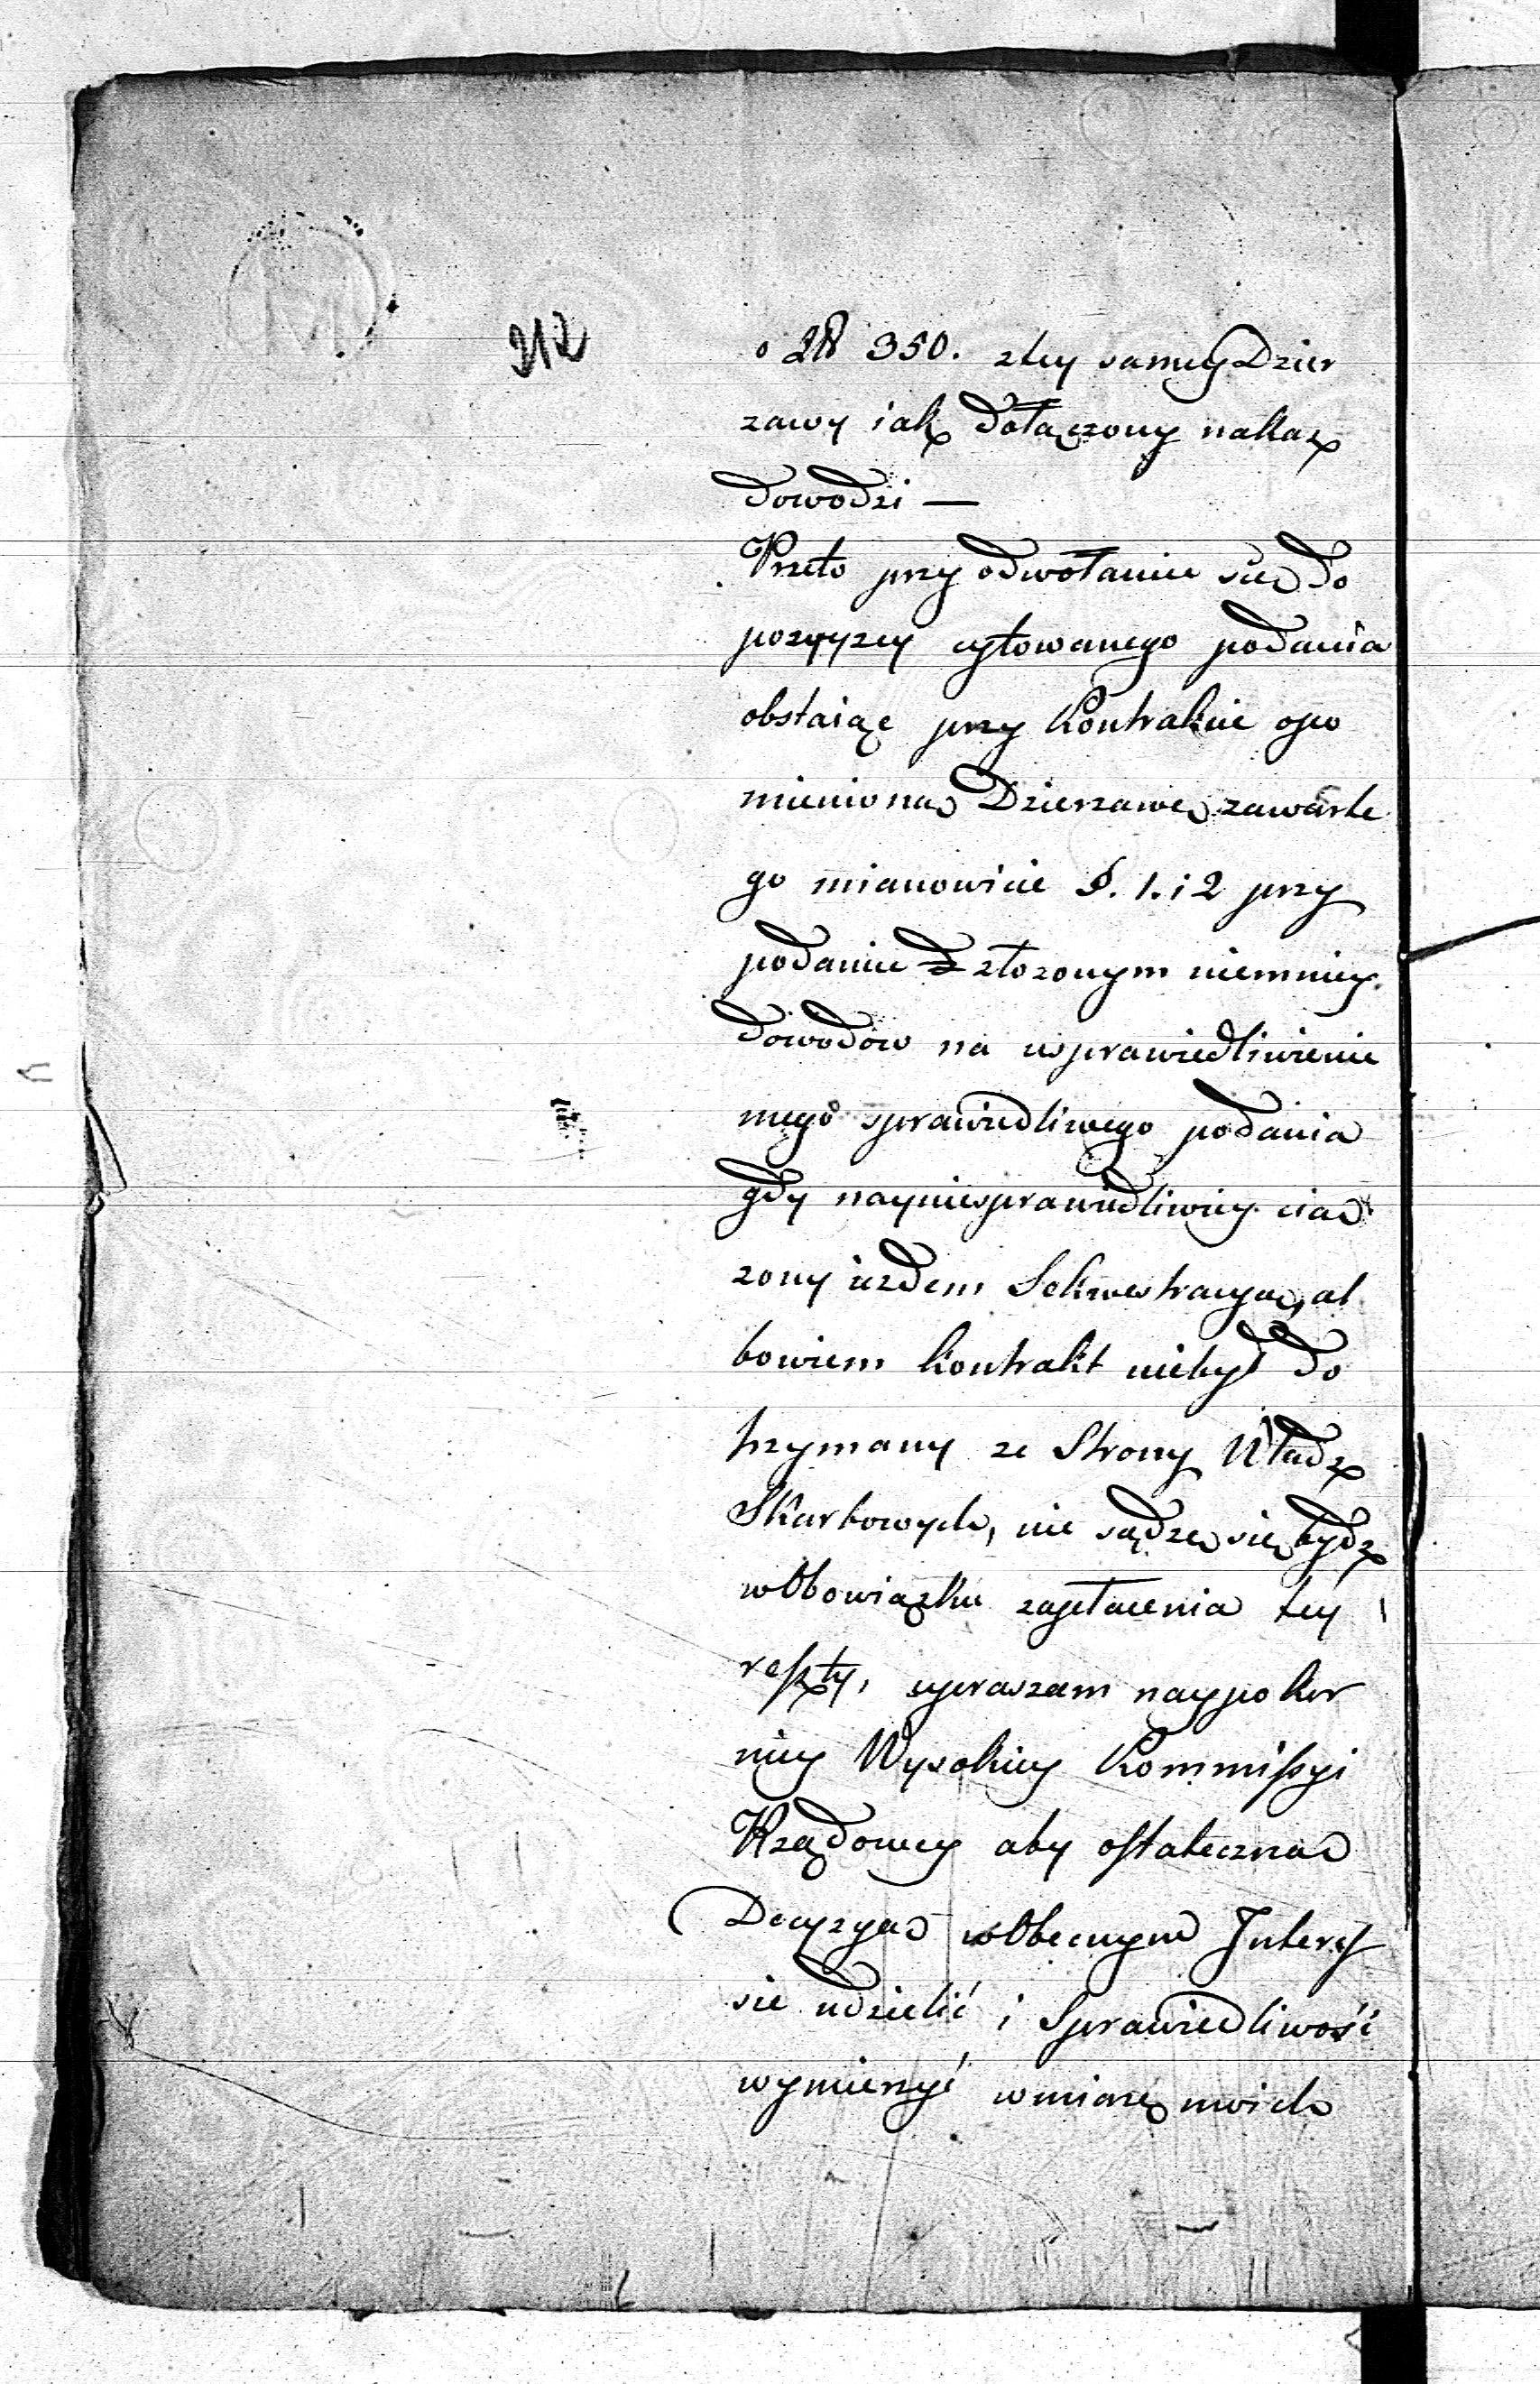 212
o Zł 350. z tey samey Dzier
zawy iak dołączony nakaz
dowodzi —
Przeto przy odwołaniu się do
powyzey cytowanego podania
obstaiąc przy Kontrakcie o po
mienioną Dzierzawę zawarte
go mianowicie §. 1. i 2 przy
podaniu złozonym niemniey
dowodów na usprawiedliwienie
mego sprawiedliwego podania
gdy nayniesprawiedliwiey cią
zony iezdem Sekwestracyą, al
bowiem kontrakt niebył do
trzymany ze Strony Władz
Skarbowych, nie sądzę się bydz
w Obowiązku zapłacenia tey
reszty, upraszam naypokor
niey Wysokiey Kommissyi
Rządowey aby ostateczną
Decyzyą w Obecnym Interes
sie udzielić i Sprawiedliwość
wymierzyć w miarę moich